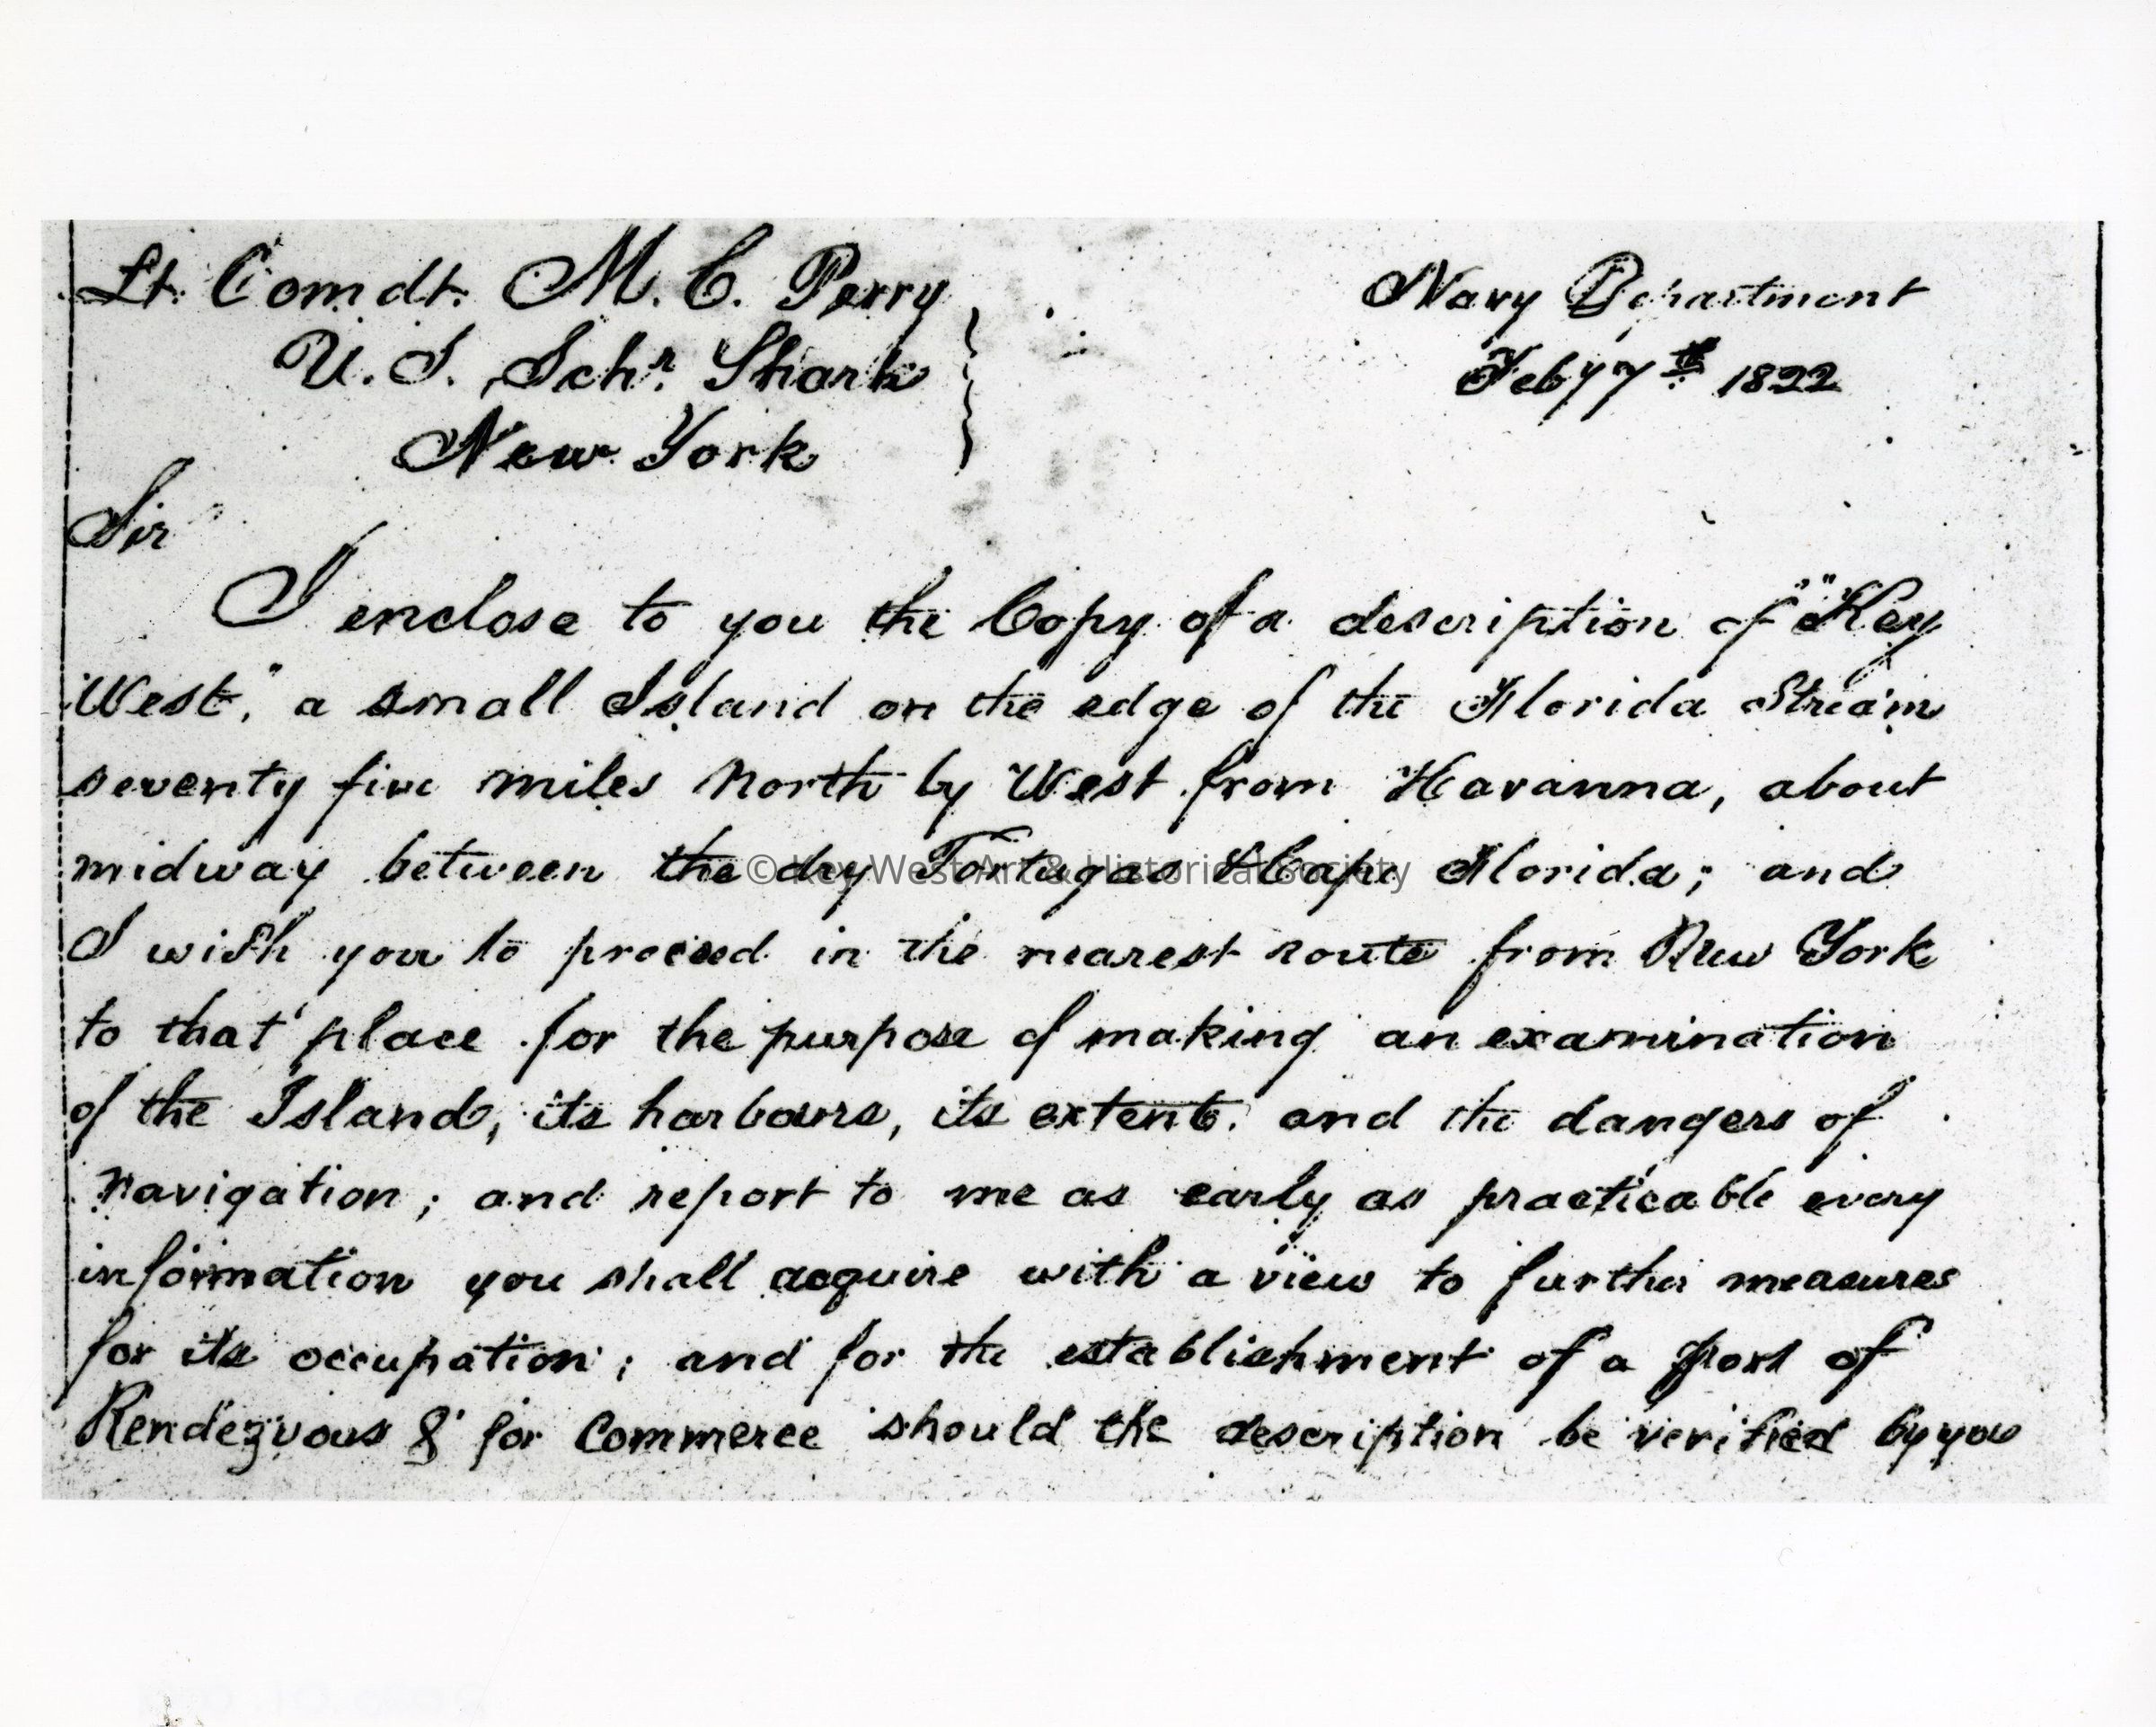 Lt. Comdt. M. C. Perry
U. S. Schr. Shark
New York
Navy Department
Feby 7th 1822
Sir
I enclose to you the Copy of a description of "Key
West," a small Island on the edge of the Florida Stream
seventy five miles North by West from Havanna, about
midway between the dry Tortugas & Cape Florida; and
I wish you to proceed in the nearest route from New York
to that place for the purpose of making an examination
of the Island, its harbours, its extent, and the dangers of
navigation; and report to me as early as practicable every
information you shall acquire with a view to further measures
for its occupation; and for the establishment of a port of
Rendezvous & for Commerce should the description be verified by you
© Key West Art & Historical Society